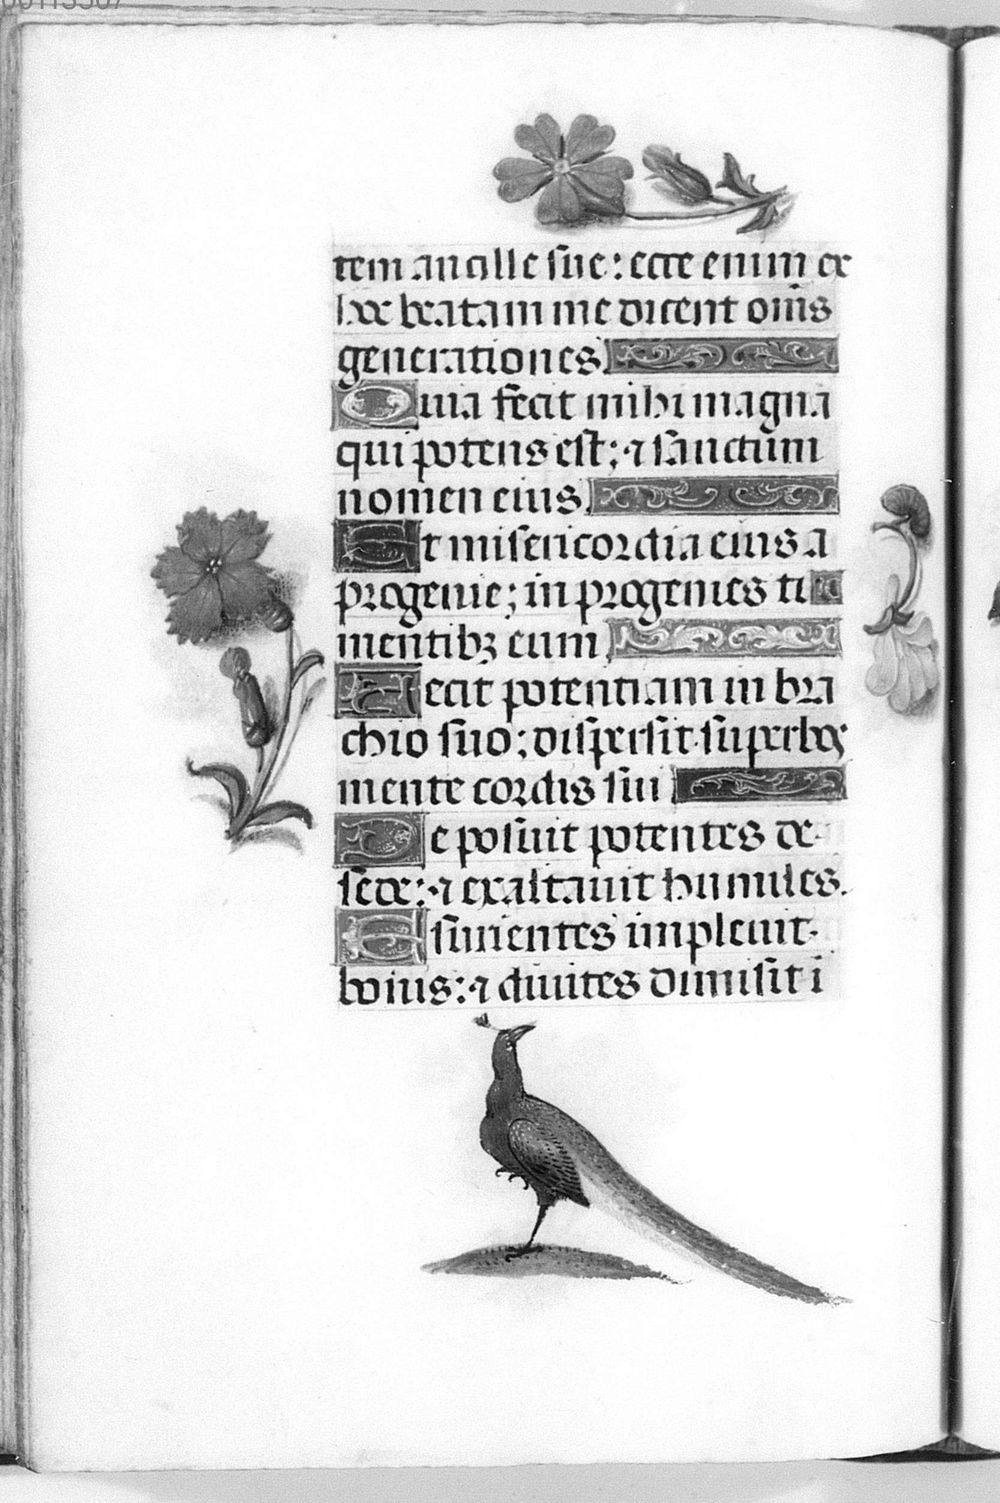 tem ancille sue: ecce enim ex
hoc beatam me dicent om̃s
generationes.
Quia fecit mihi magna
qui potens est: ⁊ sanctum
nomen eius.
Et misericordia eius a
progenie: in progenies ti
mentibꝫ eum.
Fecit potentiam in bra
chio suo: dispersit superbos
mente cordis sui
Deposuit potentes de
sede: ⁊ exaltavit humiles.
Esurientes implevit
bonis: ⁊ divites dimisit i